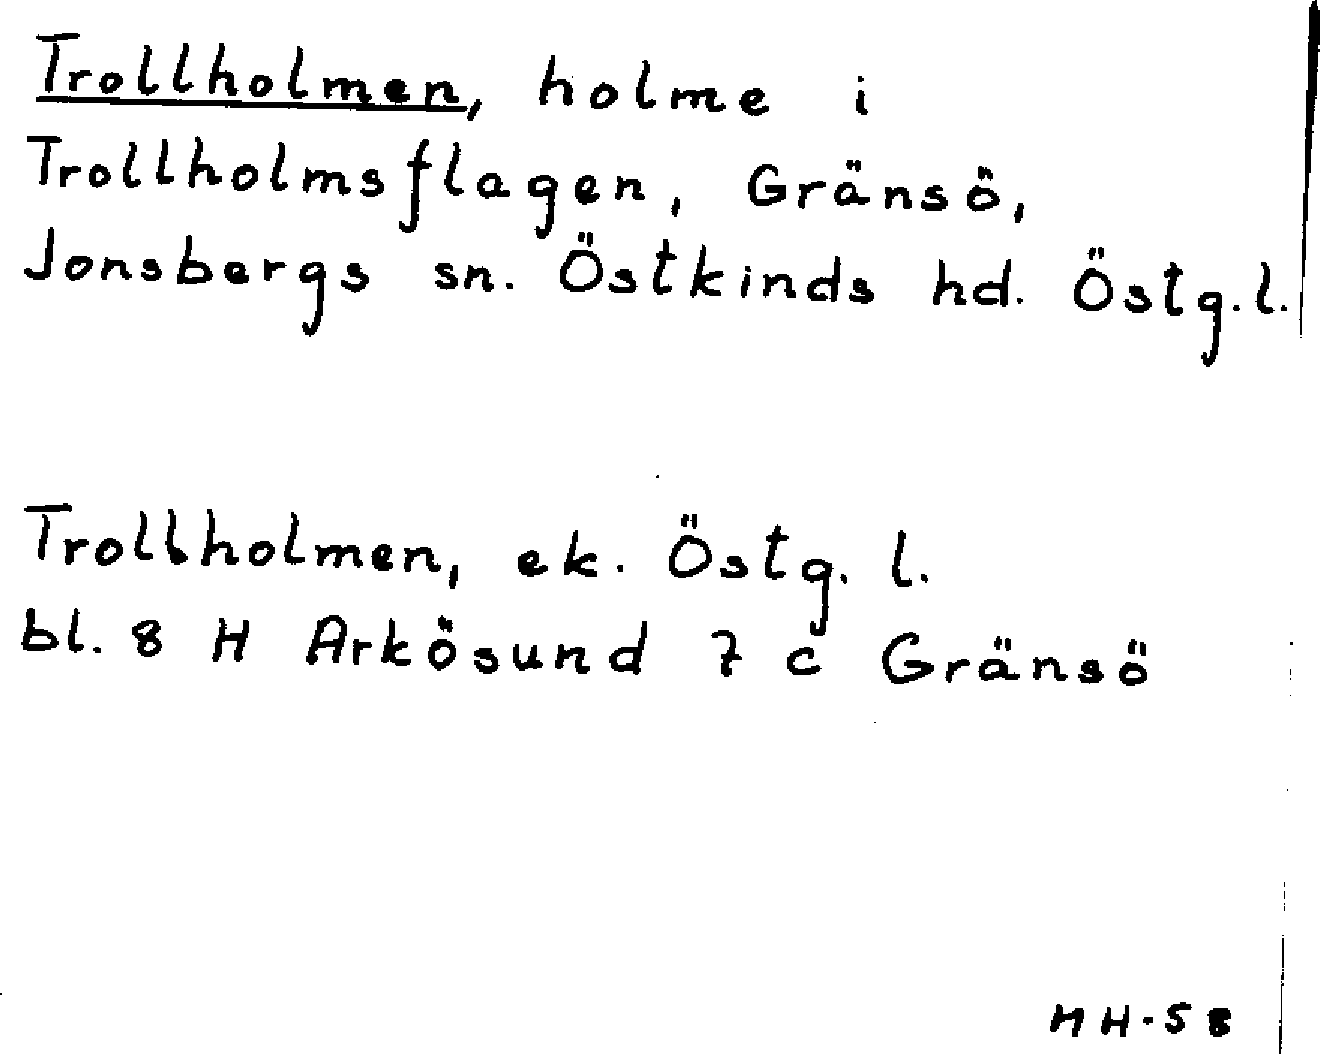 Trollholmen, holme i
Trollholmsflagen, Gränsö,
Jonsbergs sn. Östkinds hd. Östg.l.
Trollholmen, ek. Östg. l.
bl. 8 H Arkösund 7 c Gränsö
MH-58